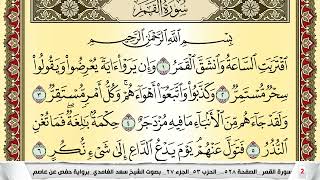 سُورَةُ القَمَرِ
بِسْمِ اللَّهِ الرَّحْمَٰنِ الرَّحِيمِ
اقْتَرَبَتِ السَّاعَةُ وَانشَقَّ الْقَمَرُ ١ وَإِن يَرَوْا آيَةً يُعْرِضُوا وَيَقُولُوا
سِحْرٌ مُّسْتَمِرٌّ ٢ وَكَذَّبُوا وَاتَّبَعُوا أَهْوَاءَهُمْ وَكُلُّ أَمْرٍ مُّسْتَقِرٌّ ٣
وَلَقَدْ جَاءَهُم مِّنَ الْأَنبَاءِ مَا فِيهِ مُزْدَجَرٌ ٤ حِكْمَةٌ بَالِغَةٌ فَمَا تُغْنِ
النُّذُرُ ٥ فَتَوَلَّ عَنْهُمْ يَوْمَ يَدْعُ الدَّاعِ إِلَىٰ شَيْءٍ نُّكُرٍ ٦
2 سورة القمر. الصفحة ٥٢٨. الحزب ٥٣. الجزء ٢٧. بصوت الشيخ سعد الغامدي. برواية حفص عن عاصم